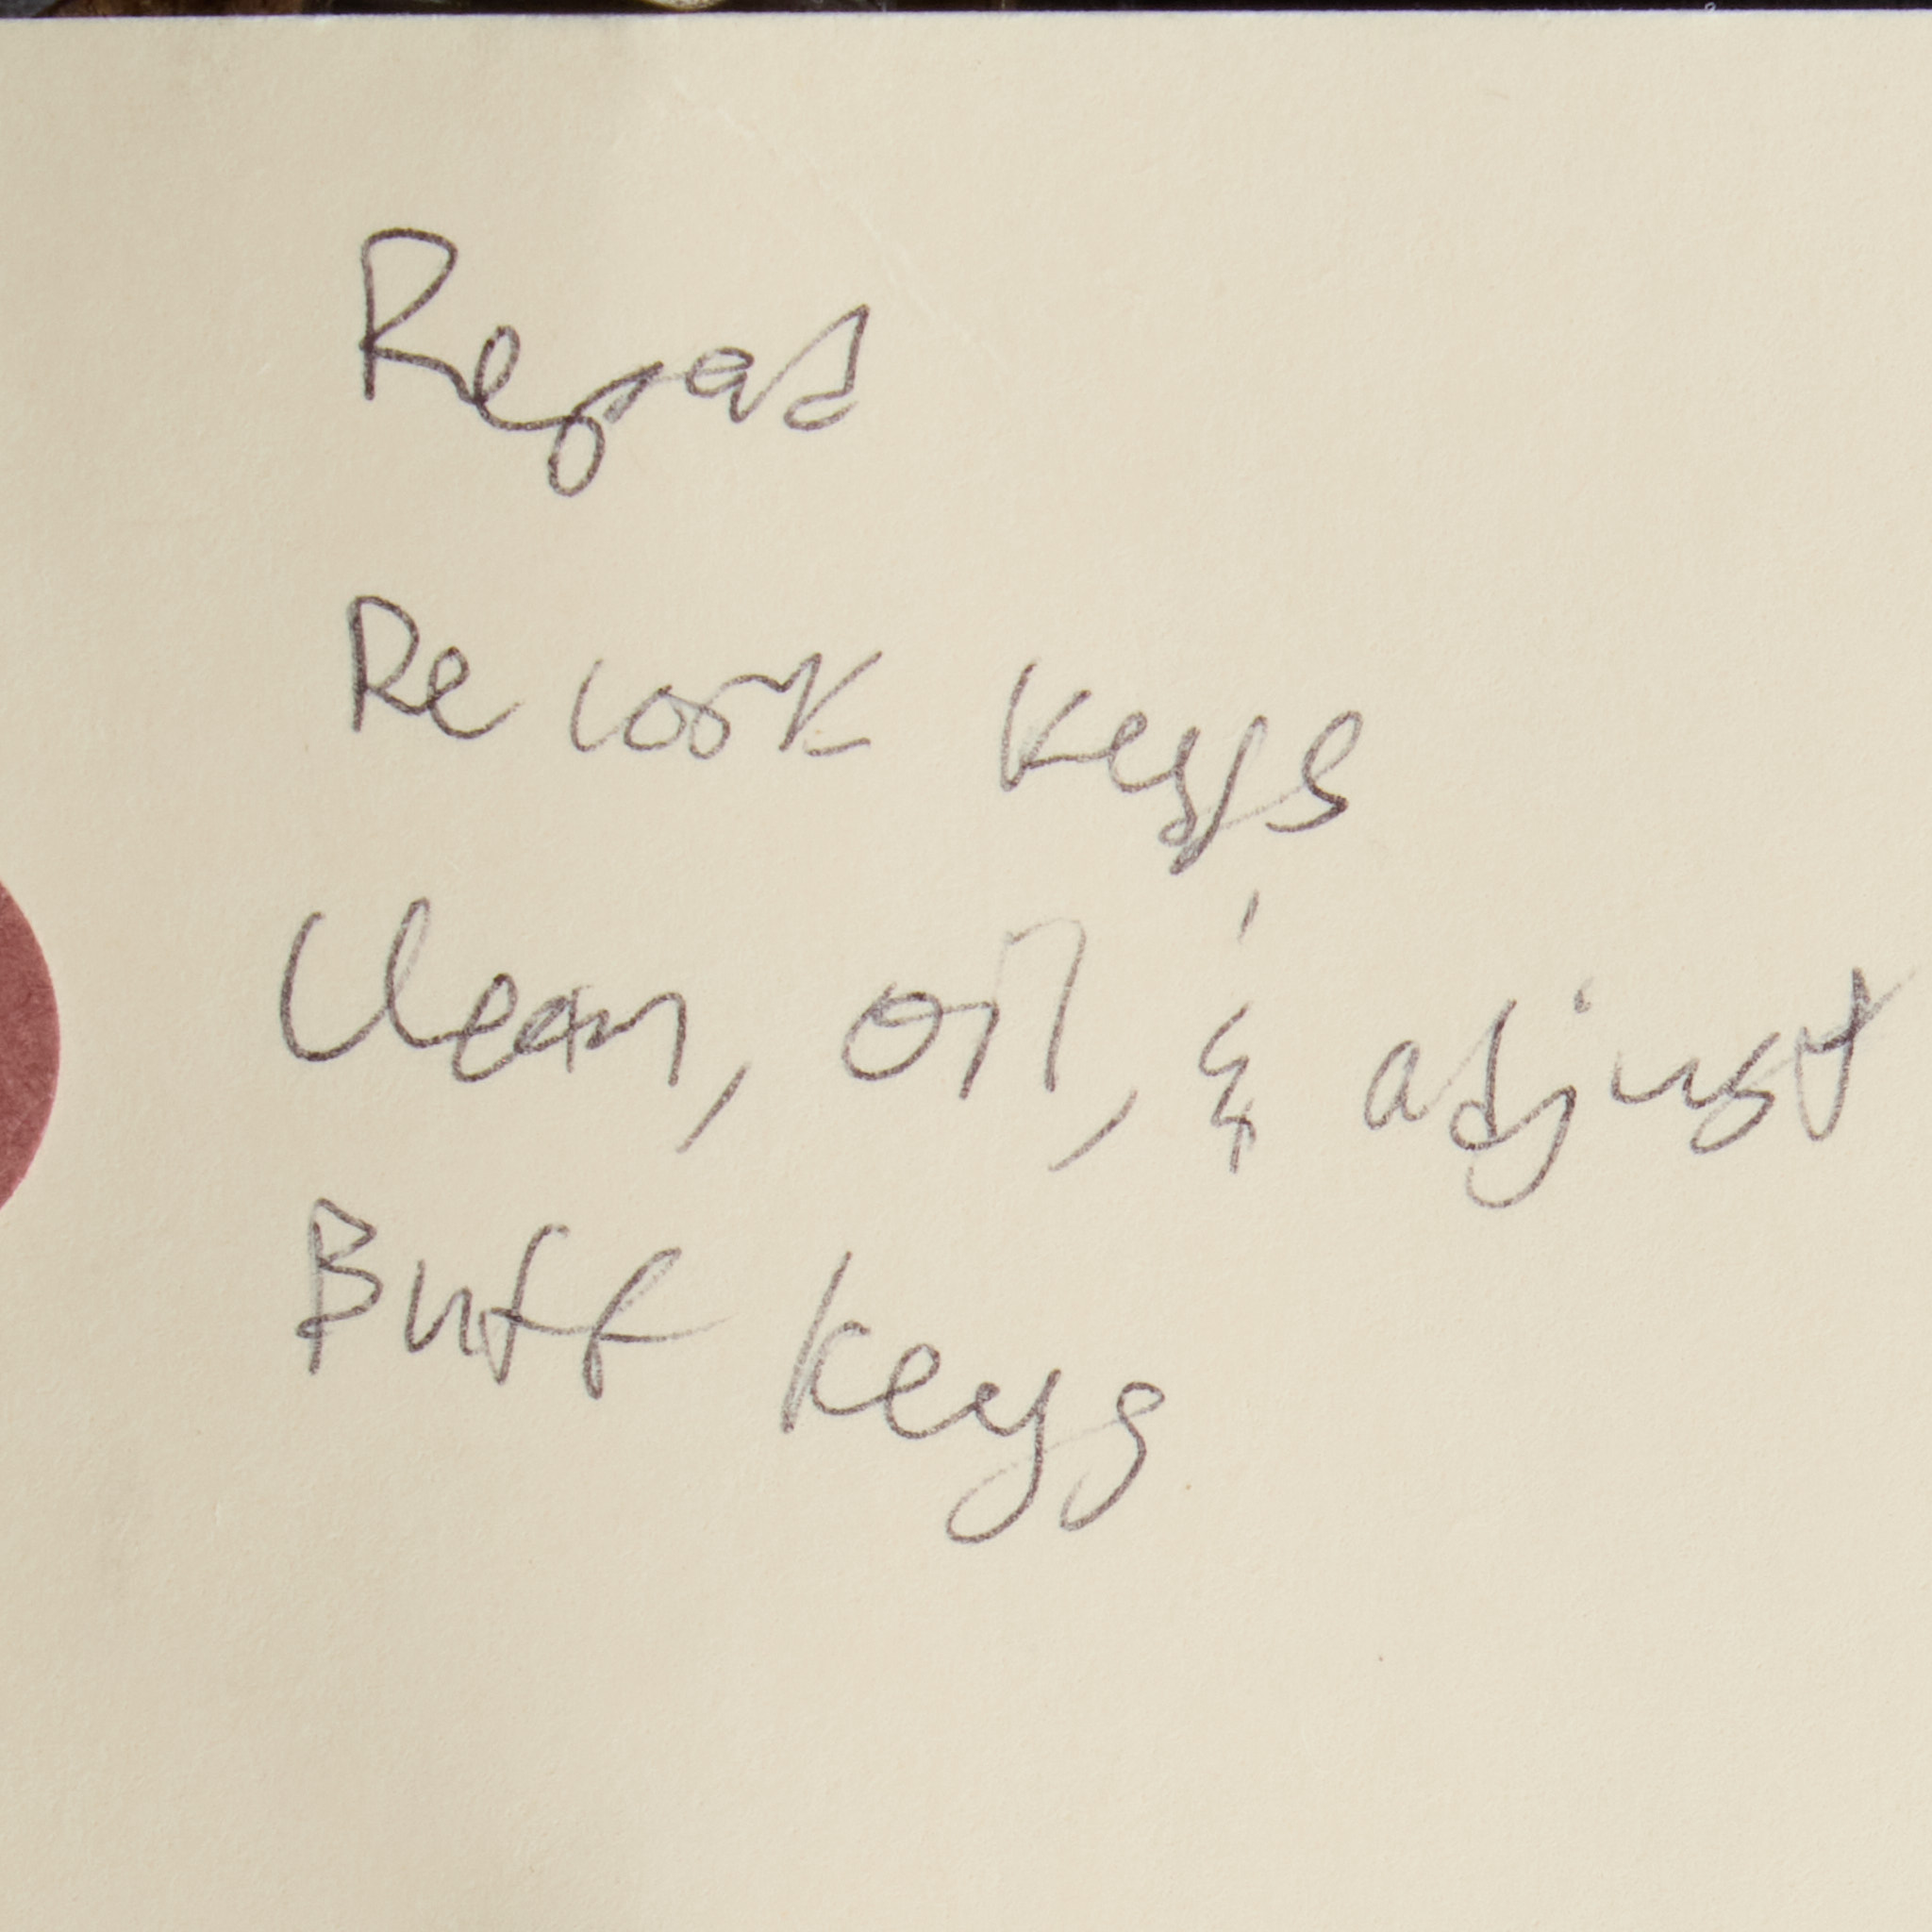 Repad
Re cork keys
Clean, oil, & adjust
Buff keys